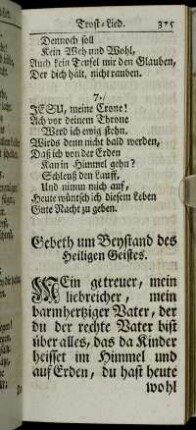 Trost-Lied. 315
Dennoch soll
Kein Weh und Wohl,
Auch kein Teufel mir den Glauben,
Der dich hält, nicht rauben.
7./
JESU, meine Crone!
Ach vor deinem Throne
Werd ich ewig stehn.
Wirds denn nicht bald werden,
Daß ich von der Erden
Kan in Himmel gehn?
Schleuß den Lauff,
Und nimm mich auf,
Heute wüntsch ich diesem Leben
Gute Nacht zu geben.
Gebeth um Beystand des
Heiligen Geistes.
MEin getreuer, mein
liebreicher, mein
barmhertziger Vater, der
du der rechte Vater bist
über alles, das da Kinder
heisset im Himmel und
auf Erden, du hast heute
wohl